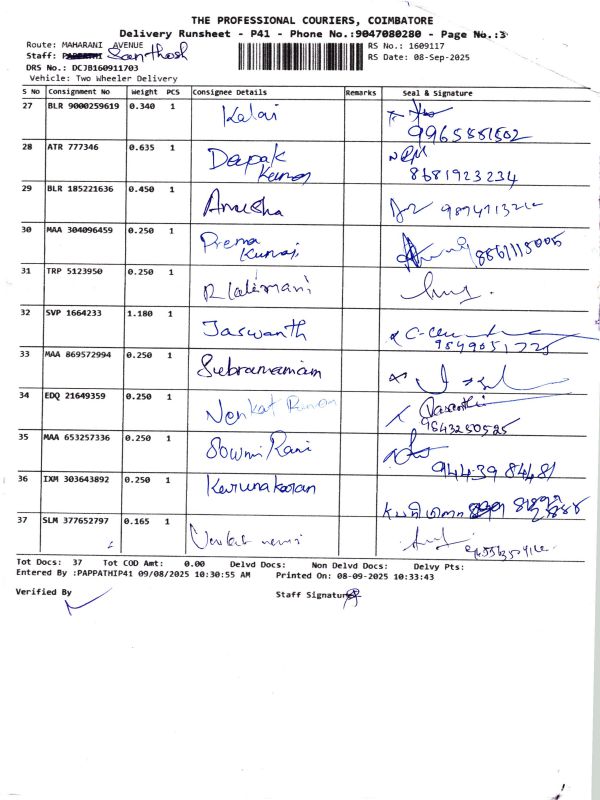 THE PROFESSIONAL COURIERS, COIMBATORE
Delivery Runsheet - P41 - Phone No.:9047080280 - Page No.:3
Route: MAHARANI AVENUE RS No.: 1609117
Staff: Santhosh RS Date: 08-Sep-2025
DRS No.: DCJB160911703
Vehicle: Two Wheeler Delivery
S No Consignment No Weight PCS Consignee Details Remarks Seal & Signature
27 BLR 9000259619 0.340 1 Kalai
28 ATR 777346 0.635 1 Deepak Kumar 8681923234
29 BLR 185221636 0.450 1 Anusha
30 MAA 304096459 0.250 1 Prema Kumari 8861115005
31 TRP 5123950 0.250 1
32 SVP 1664233 1.180 1 Jaswanth 9849051725
33 MAA 869572994 0.250 1 Subramaniam
34 EDQ 21649359 0.250 1 Venkat Raman Vasanthi 9843250525
35 MAA 653257336 0.250 1 Sowmi Rani 9443984481
36 IXM 303643892 0.250 1 Karunakaran
37 SLM 377652797 0.165 1 Venkat
Tot Docs: 37 Tot COD Amt: 0.00 Delvd Docs: Non Delvd Docs: Delvy Pts:
Entered By :PAPPATHIP41 09/08/2025 10:30:55 AM Printed On: 08-09-2025 10:33:43
Verified By Staff Signature